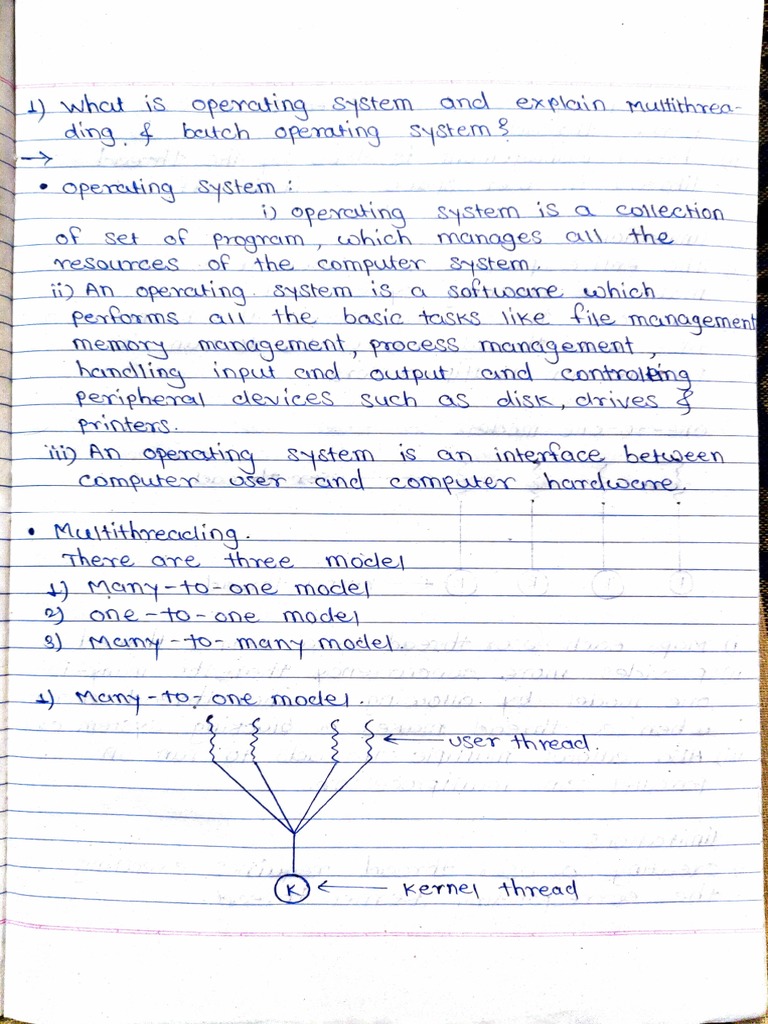 1) What is operating system and explain Multithrea-
ding & batch operating system?
→
• operating system :
i) operating system is a collection
of set of program, which manages all the
resources of the computer system.
ii) An operating system is a software which
performs all the basic tasks like file management
memory management, process management,
handling input and output and controling
peripheral devices such as disk, drives &
printers.
iii) An operating system is an interface between
computer user and computer hardware.
• Multithreading.
There are three model
1) Many-to-one model
2) one-to-one model
3) Many-to-many model.
1) Many-to-one model.
← user thread.
K ← Kernel thread